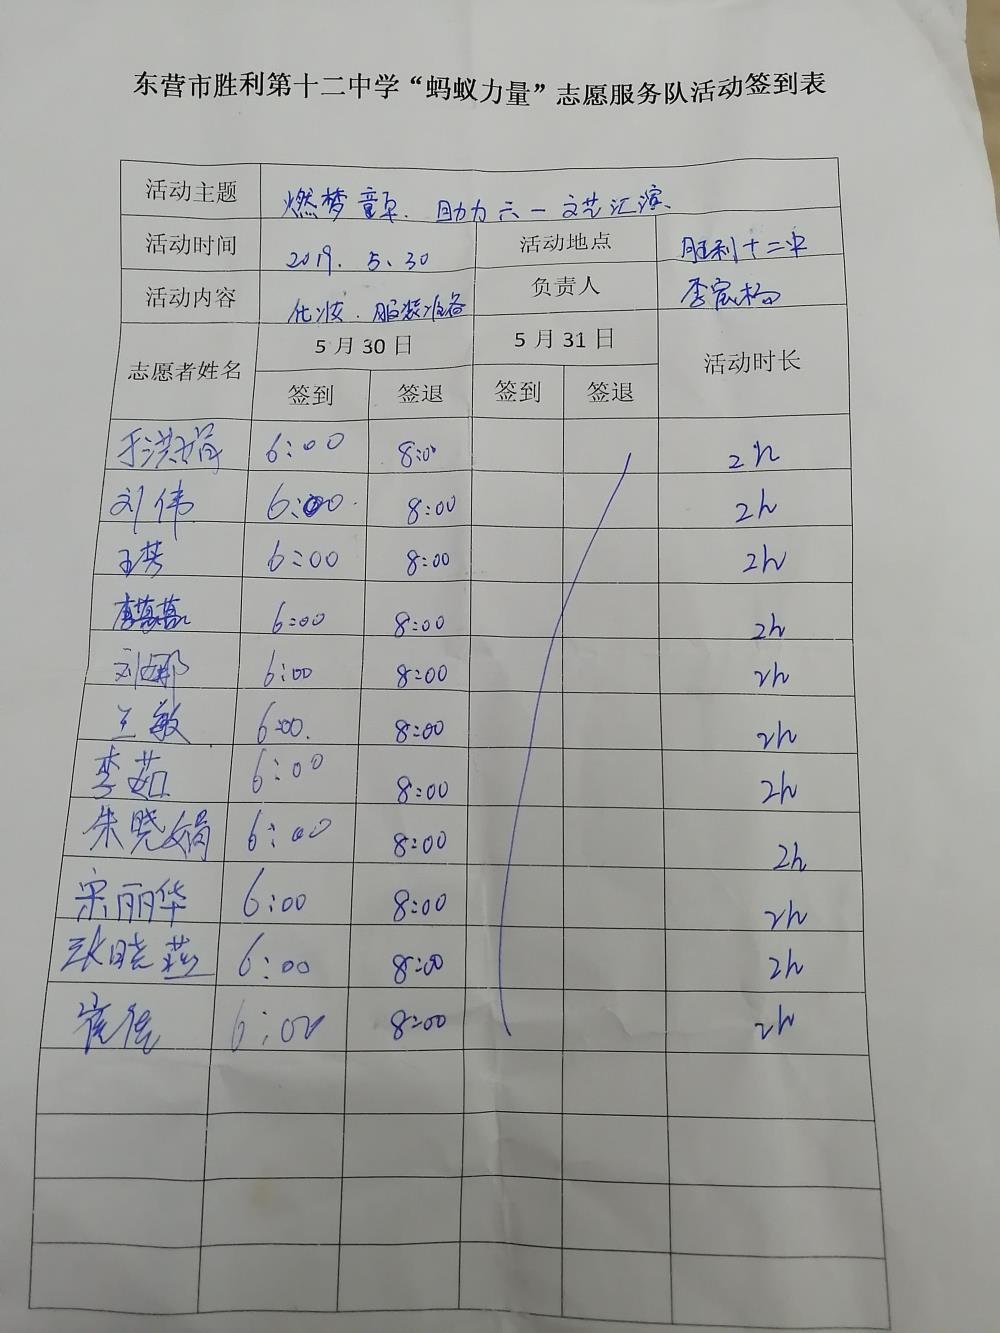 东营市胜利第十二中学“蚂蚁力量”志愿服务队活动签到表
活动主题 燃梦童享.助力六一文艺汇演.
活动时间 2019.5.30 活动地点 胜利十二中
活动内容 化妆.服装准备 负责人 李
志愿者姓名 5月30日 5月31日 活动时长
签到 签退 签到 签退
于洪娟 6:00 8:00 2h
刘伟 6:00 8:00 2h
王芳 6:00 8:00 2h
6:00 8:00 2h
刘娜 6:00 8:00 2h
王敏 6:00. 8:00 2h
李茹 6:00 8:00 2h
朱晓娟 6:00 8:00 2h
宋丽华 6:00 8:00 2h
张晓燕 6:00 8:00 2h
崔 6:00 8:00 2h